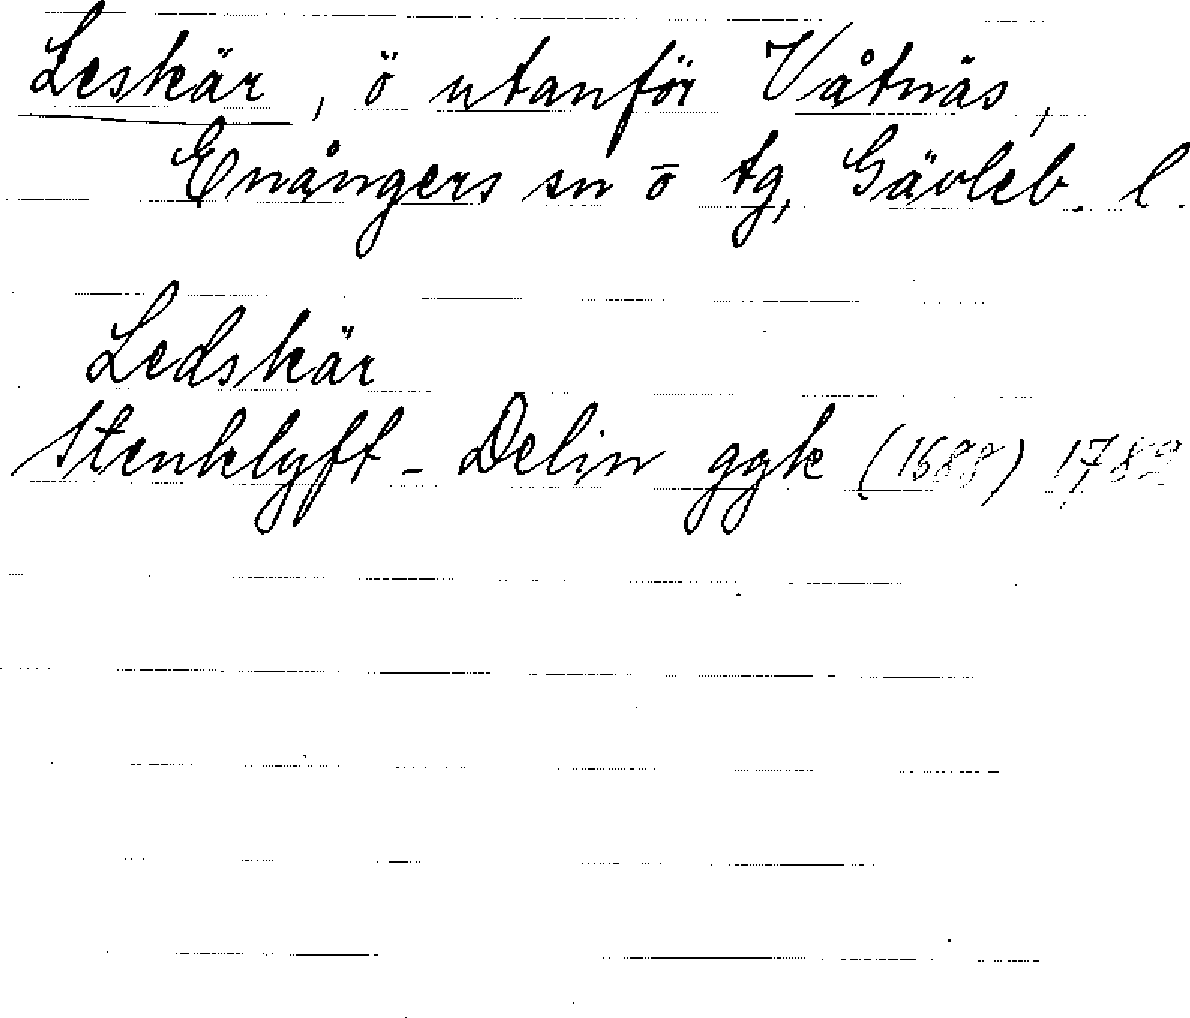 Leskär, ö utanför Våtnäs,
Enångers sn o tg, Gävleb. l.
Ledskär
Stenklyft - Delin ggk (1688) 1782